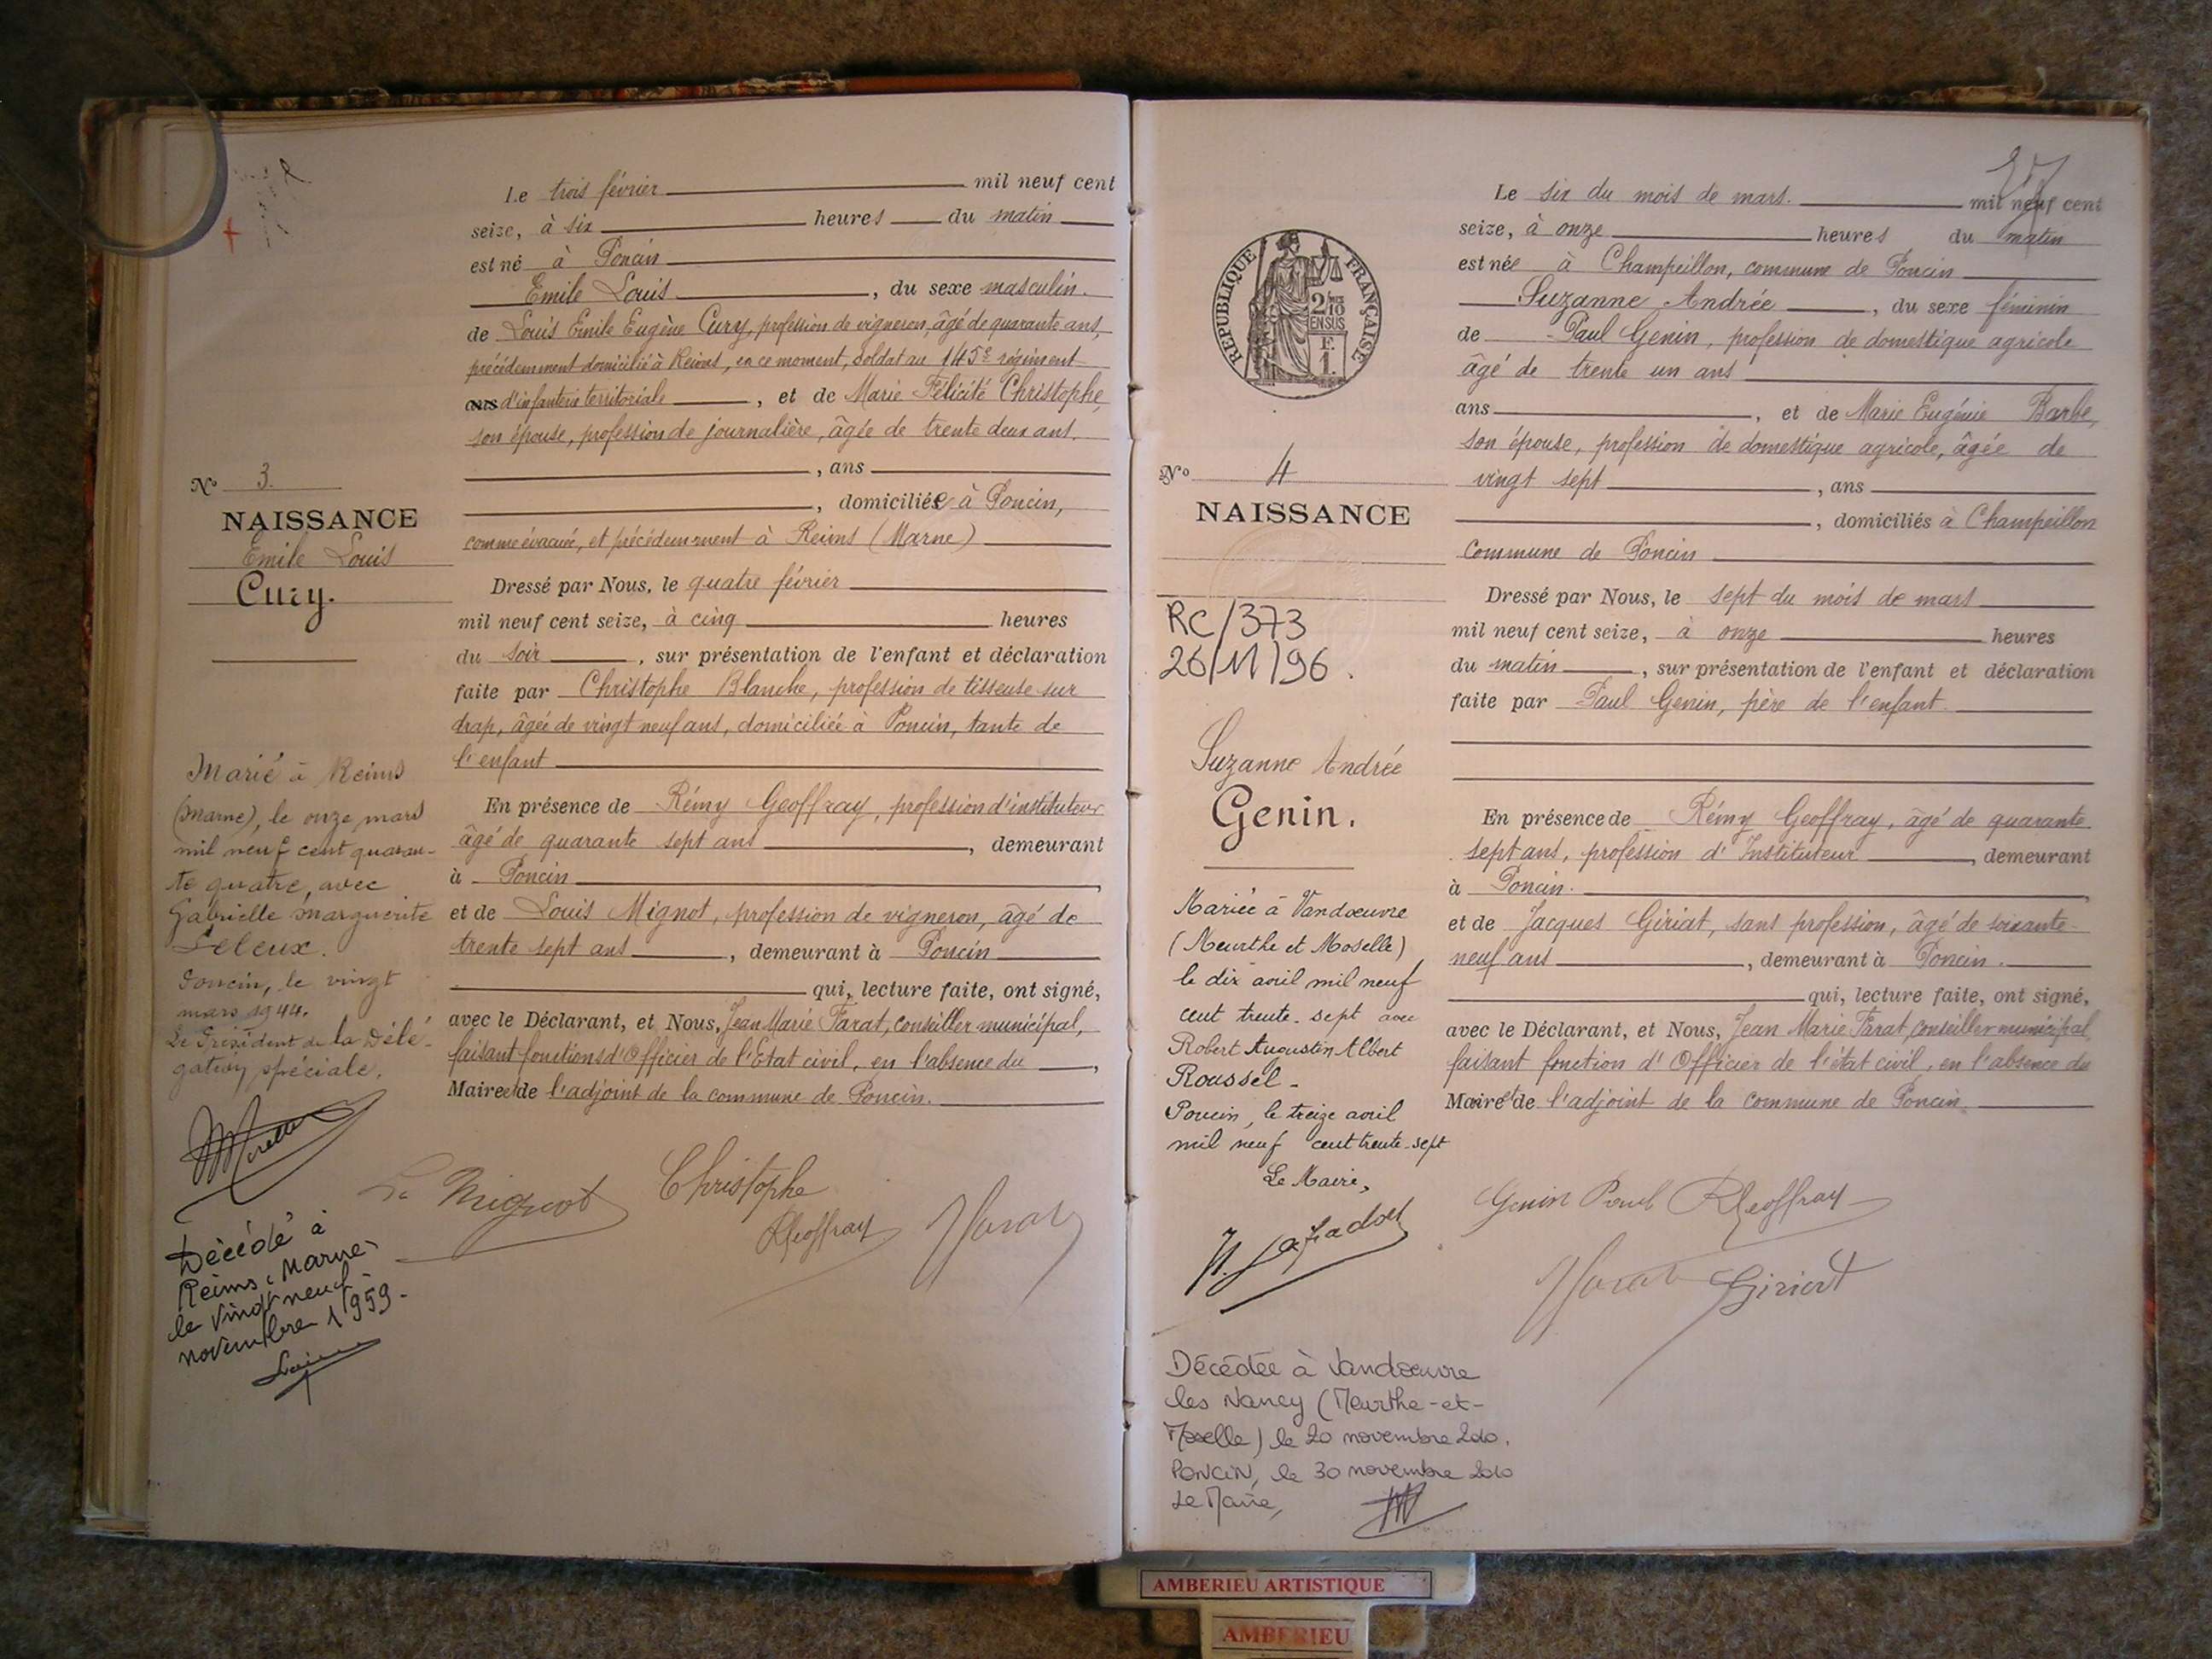 Le trois février mil neuf cent
seize, à six heures du matin
est né à Poncin
Emile Louis, du sexe masculin.
de Louis Emile Eugène Cury, profession de vigneron, âgé de quarante ans,
précédemment domicilié à Reims, en ce moment, soldat au 145e régiment
ans d'infanterie territoriale, et de Marie Félicité Christophe,
son épouse, profession de journalière, âgée de trente deux ans.
, ans
, domiciliée à Poncin,
comme évacuée, et précédemment à Reims (Marne)
No 3.
NAISSANCE
Emile Louis
Cury.
Dressé par Nous, le quatre février
mil neuf cent seize, à cinq heures
du soir, sur présentation de l'enfant et déclaration
faite par Christophe Blanche, profession de tisseuse sur
drap, âgée de vingt neuf ans, domiciliée à Poncin, tante de
l'enfant
En présence de Rémy Geoffray, profession d'instituteur
âgé de quarante sept ans, demeurant
à Poncin,
et de Louis Mignot, profession de vigneron, âgé de
trente sept ans, demeurant à Poncin
qui, lecture faite, ont signé,
avec le Déclarant, et Nous, Jean Marie Farat, conseiller municipal,
faisant fonctions d'Officier de l'Etat civil, en l'absence du,
Maire et de l'adjoint de la commune de Poncin.
Marié à Reims
(Marne), le onze mars
mil neuf cent quaran-
te quatre, avec
Gabrielle Marguerite
Leleux.
Poncin, le vingt
mars 1944.
Le Président de la Délé-
gation spéciale.
L. Mignot Christophe
RGeoffray JFarat
Décédé à
Reims, Marne
le vingt neuf
novembre 1959.
Le six du mois de mars. mil neuf cent
seize, à onze heures du matin
est née à Champeillon, commune de Poncin
Suzanne Andrée, du sexe féminin
de Paul Genin, profession de domestique agricole
âgé de trente un ans
ans, et de Marie Eugénie Barbe,
son épouse, profession de domestique agricole, âgée de
vingt sept, ans
, domiciliés à Champeillon
commune de Poncin
REPUBLIQUE FRANÇAISE
2/10
EN SUS
F.
1.
No 4
NAISSANCE
RC/373
26/11/96.
Suzanne Andrée
Genin.
Dressé par Nous, le sept du mois de mars
mil neuf cent seize, à onze heures
du matin, sur présentation de l'enfant et déclaration
faite par Paul Genin, père de l'enfant.
En présence de Rémy Geoffray, âgé de quarante
sept ans, profession d'Instituteur, demeurant
à Poncin.,
et de Jacques Giriat, sans profession, âgé de soixante-
neuf ans, demeurant à Poncin.
qui, lecture faite, ont signé,
avec le Déclarant, et Nous, Jean Marie Farat, conseiller municipal,
faisant fonction d'Officier de l'état civil, en l'absence du
Maire et de l'adjoint de la commune de Poncin
Mariée à Vandoeuvre
(Meurthe et Moselle)
le dix avril mil neuf
cent trente-sept avec
Robert Augustin Albert
Roussel-
Poncin, le treize avril
mil neuf cent trente-sept
Le Maire,
Genin Paul RGeoffray
JFarat Giriat
Décédée à Vandoeuvre
les Nancy (Meurthe-et-
Moselle) le 20 novembre 2010.
PONCIN, le 30 novembre 2010
Le Maire,
AMBERIEU ARTISTIQUE
AMBERIEU